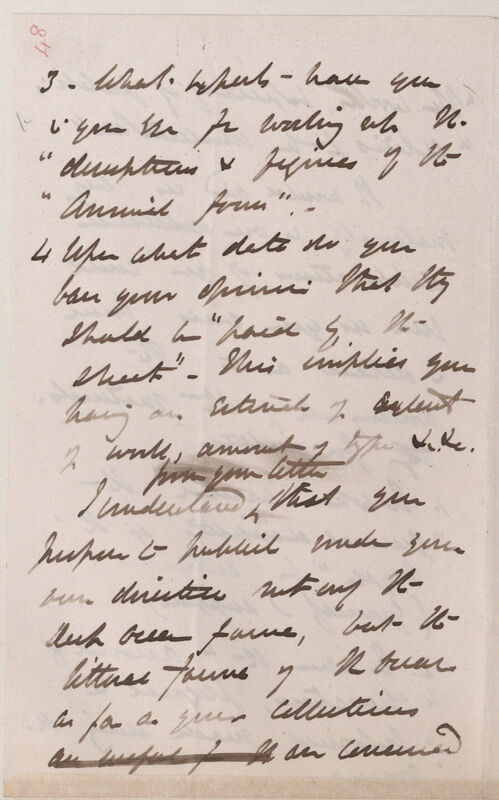 48
3 - What experts - have you
in your eye for working out the
"descriptions & figures of the
"Animal forms". -
4 Upon what data do you
base your opinion that they
should be "paid by the
sheet" - This implies you
having an estimate of extent
of work, amount of type &c. &c.
from your letter
I understand, that you
propose to publish under your
own direction not only the
deep ocean fauna, but the
littoral fauna of the ocean
as far as your collections
are useful for the are concerned